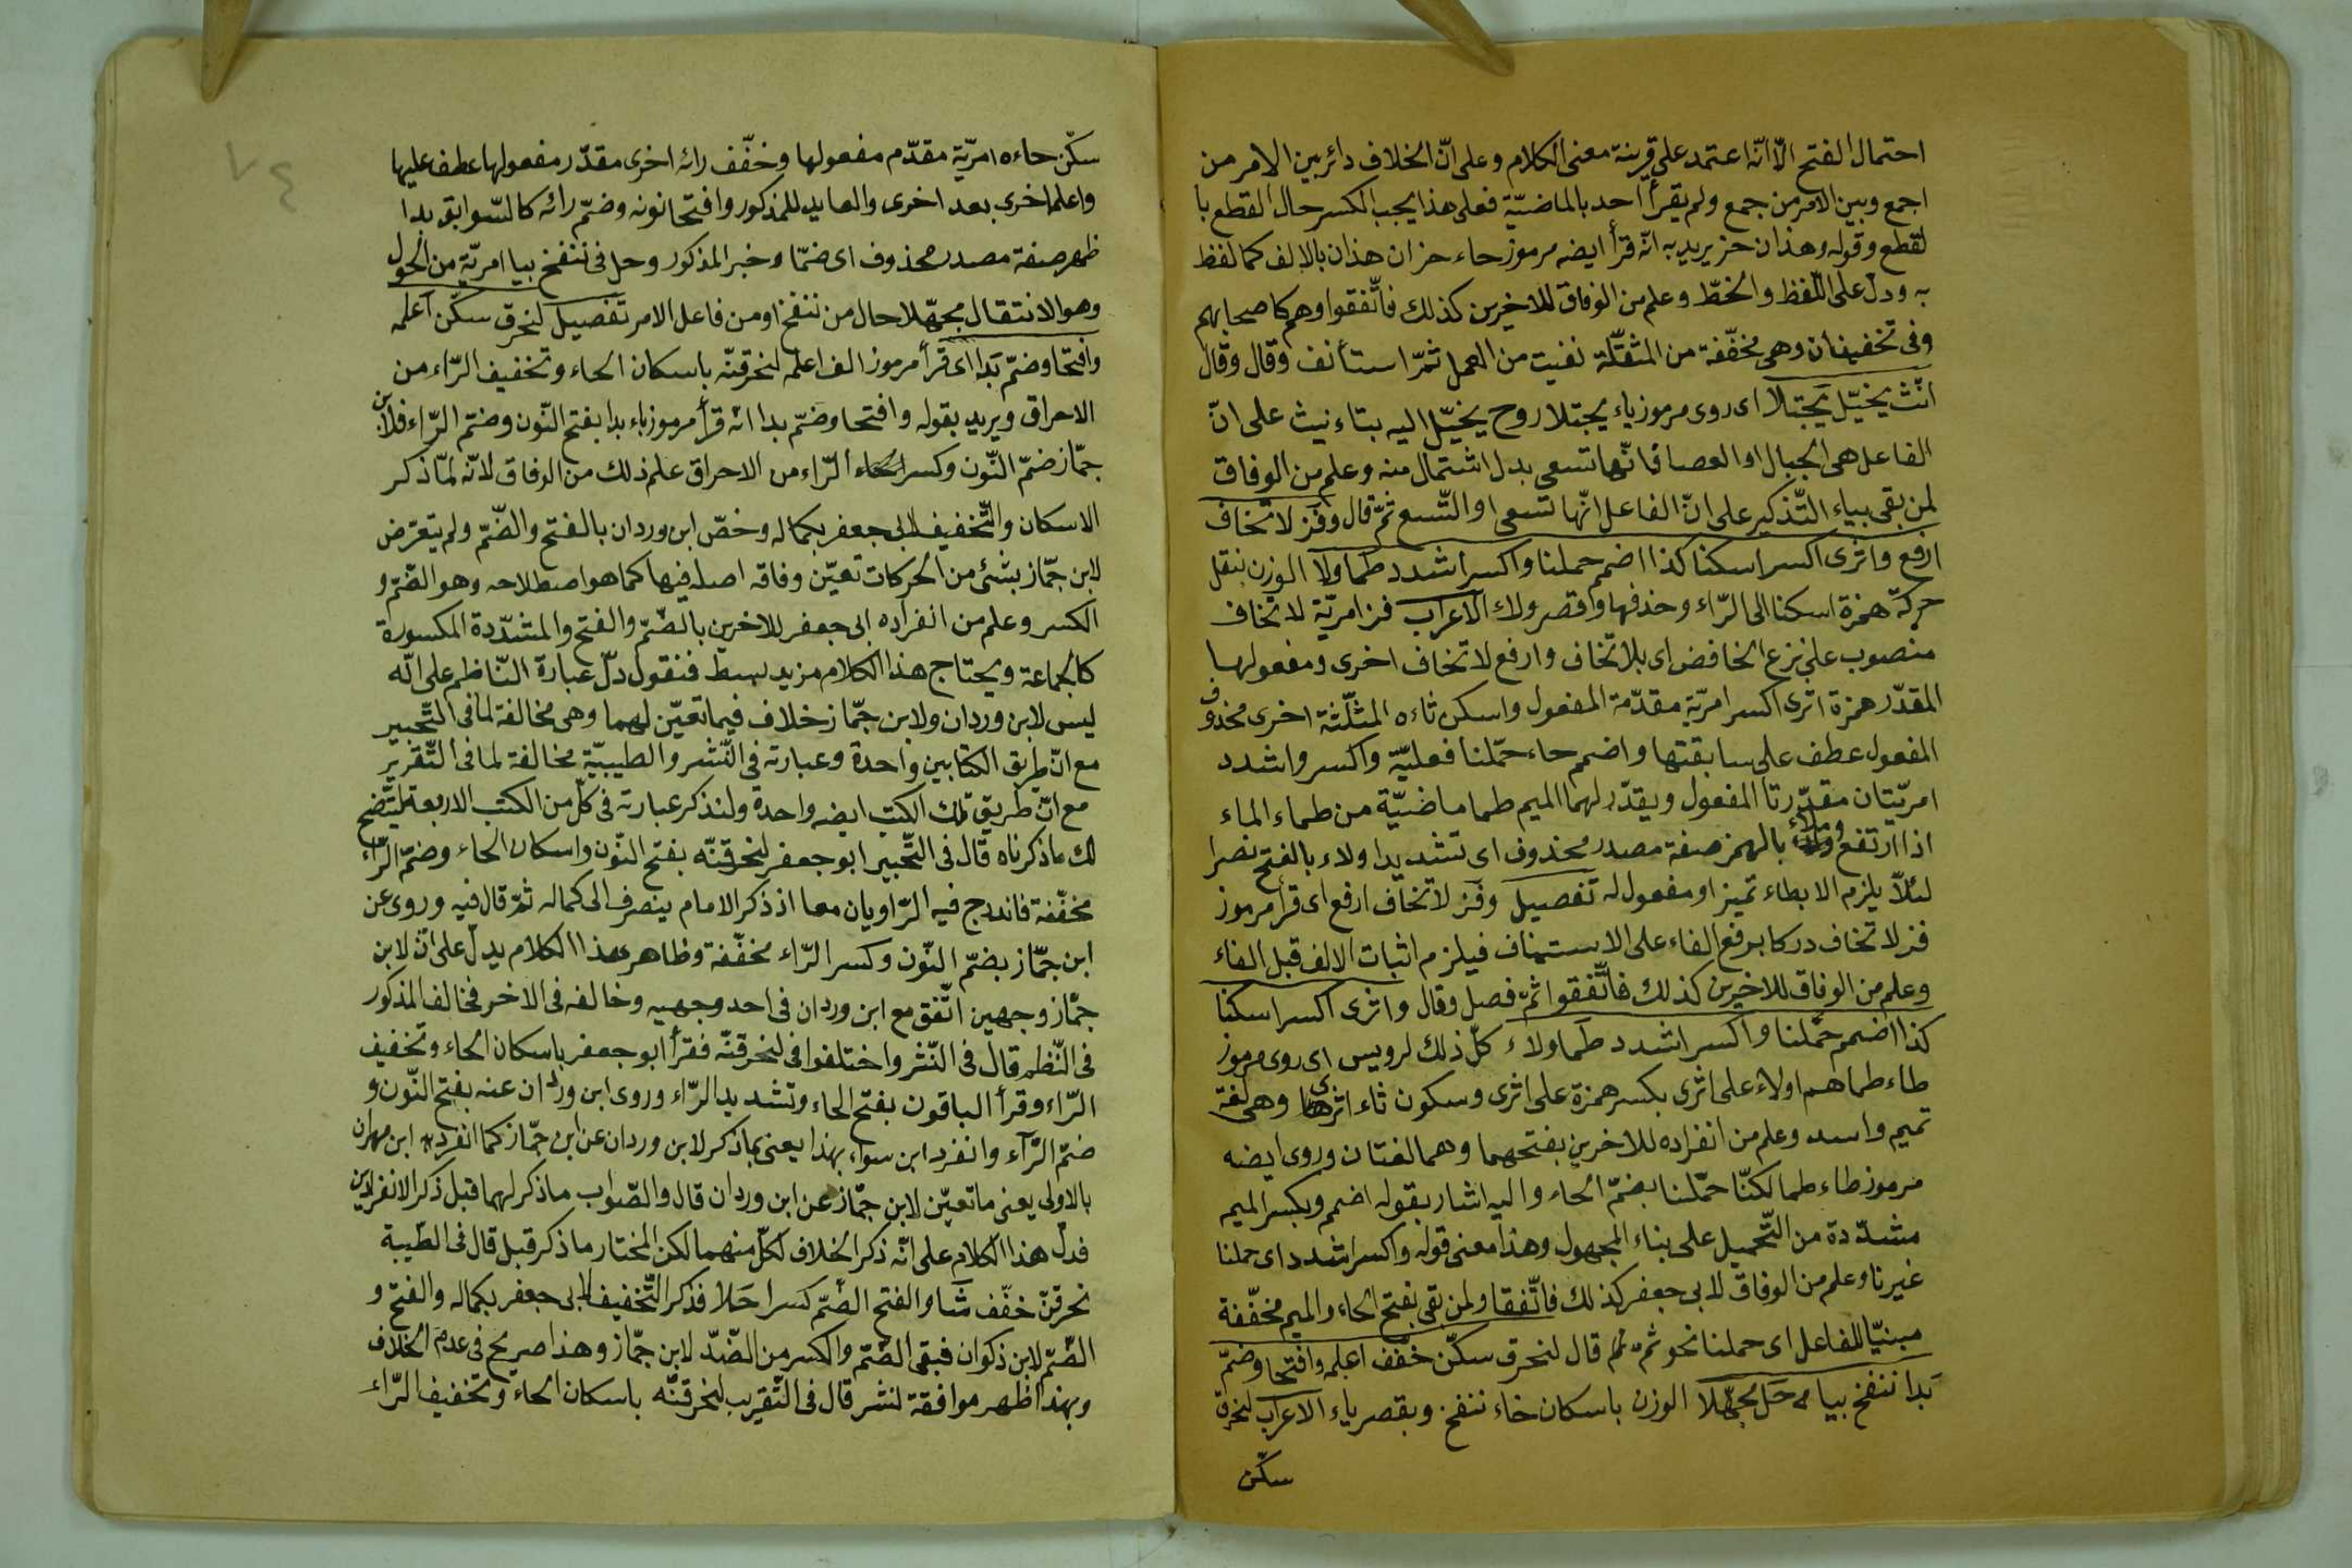 احتمال الفتح الّا انّه اعتمد على قرينة معنى الكلام وعلى انّ الخلاف دائر بين الامر من
اجمع وبين الامر من جمع ولم يقرأ احد بالماضيّة فعلى هذا يجب الكسر حال القطع با
لقطع وقوله وهذان حز يريد به انّه قرأ ايضه مرموز حاء حز ان هذان بالالف كما لفظ
به ودلّ على اللّفظ والخطّ وعلم من الوفاق للاخيرين كذلك فاتّفقوا وهم كاصحابهم
وفى تخفيف ان وهى مخفّفة من المثقّلة نفيت من العمل ثمّ استأنف وقال وقال
انّث يخيّل يجتلا اى روى مرموز ياء يجتلا روح يخيّل اليه بتاء نيث على انّ
الفاعل هى الحبال او العصا فانّها تسعى بدل اشتمال منه وعلم من الوفاق
لمن بقى بياء التّذكير على انّ الفاعل انّها تسعى او التّسع ثمّ قال وفز لا تخاف
ارفع واثرى اكسر اسكنا كذا اضمم حملنا واكسر اشدد طما ولا الوزن بنقل
حركة همزة اسكنا الى الرّاء وحذفها وقصر ولاء الاعراب فز امريّة لا تخاف
منصوب على نزع الخافض اى بلا تخاف وارفع لا تخاف اخرى ومفعولها
المقدّر همزة اثرى اكسر امريّة مقدّمة المفعول واسكن ثاءه المثلّثة اخرى محذوف
المفعول عطف على سابقتها واضمم حاء حمّلنا فعليّة واكسر واشدد
امريّتان مقدّرتا المفعول ويقدّر لهما الميم طما ماضيّة من طماء الماء
اذا ارتفع وملاء بالهمز صفة مصدر محذوف اى تشديدا ولاء بالفتح نصرا
لئلّا يلزم الابطاء تميز او مفعول له تفصيل وفز لا تخاف ارفع اى قرأ مرموز
فز لا تخاف دركا برفع الفاء على الاستيناف فيلزم اثبات الالف قبل الفاء
وعلم من الوفاق للاخيرين كذلك فاتّفقوا ثمّ فصل وقال واثرى اكسر اسكنا
كذا اضمم حمّلنا واكسر اشدد طما ولاء كلّ ذلك لرويس اى روى مرموز
طاء طما هم اولاء على اثرى بكسر همزة على اثرى وسكون ثاء اثرى وهى لغة
تميم واسد وعلم من انفراده للاخرين بفتحهما وهما لغتان وروى ايضه
مرموز طاء طما لكنّا حمّلنا بضمّ الحاء واليه اشار بقوله اضمم وبكسر الميم
مشدّدة من التّحميل على بناء المجهول وهذا معنى قوله واكسر اشدد اى حملنا
غيرنا وعلم من الوفاق لابى جعفر كذلك فاتّفقا ولمن بقى بفتح الحاء والميم مخفّفة
مبنيّا للفاعل اى حملنا نحو ثمّ قال لنحرق سكّن خفّف اعلمه وافتحا وضمّ
بدا ننفخ بيا حل مجهّلا الوزن باسكان خاء ننفخ وبقصر ياء الاعراب لنحرق
سكّن
سكّن حاءه امريّة مقدّم مفعولها وخفّف رائه اخرى مقدّر مفعولها عطف عليها
واعلما اخرى بعد اخرى والعايد للمذكور وافتحا نونه وضمّ رائه كالسّوابق بدا
ظهر صفة مصدر محذوف اى ضمّا وخبر المذكور وحل فى ننفخ بيا امريّة من الحول
وهو الانتقال مجهّلا حال من ننفخ او من فاعل الامر تفصيل لنحرق سكّن اعلمه
وافتحا وضمّ بدا اى قرأ مرموز الف اعلمه لنحرقنّه باسكان الحاء وتخفيف الرّاء من
الاحراق ويريد بقوله وافتحا وضمّ بدا انّه قرأ مرموز باء بدا بفتح النّون وضمّ الرّاء فلابن
جمّاز ضمّ النّون وكسر الرّاء من الاحراق علم ذلك من الوفاق لانّه لمّا ذكر
الاسكان والتّخفيف لابى جعفر بكماله وخصّ ابن وردان بالفتح والضّمّ ولم يتعرّض
لابن جمّاز بشئ من الحركات تعيّن وفاقه اصله فيها كما هو اصطلاحه وهو الضّمّ و
الكسر وعلم من انفراده ابى جعفر للاخرين بالضّمّ والفتح والمشدّدة المكسورة
كالجماعة ويحتاج هذا الكلام مزيد بسط فنقول دلّ عبارة النّاظم على انّه
ليس لابن وردان ولابن جمّاز خلاف فيما تعيّن لهما وهى مخالفة لما فى التّحبير
مع انّ طريق الكتابين واحدة وعبارته فى النّشر والطيبيّة مخالفة لما فى التّقرير
مع انّ طريق تلك الكتب ايضه واحدة ولنذكر عبارته فى كلّ من الكتب الاربعة ليتّضح
لك ماذكرناه قال فى التّحبير ابو جعفر لنحرقنّه بفتح النّون واسكان الحاء وضمّ الرّاء
مخفّفة فاندرج فيه الرّاويان معا اذ ذكر الامام ينصرف الى كماله ثمّ قال فيه وروى عن
ابن جمّاز بضمّ النّون وكسر الرّاء مخفّفة وظاهر هذا الكلام يدلّ على انّ لابن
جمّاز وجهين اتّفق مع ابن وردان فى احد وجهيه وخالفه فى الاخر فخالف المذكور
فى النّظم قال فى النّشر واختلفوا فى لنحرقنّه فقرأ ابو جعفر باسكان الحاء وتخفيف
الرّاء وقرأ الباقون بفتح الحاء وتشديد الرّاء وروى ابن وردان عنه بفتح النّون و
ضمّ الرّاء وانفرد ابن سوار بهذا يعنى ماذكر لابن وردان عن ابن جمّاز كما انفرد ابن مهران
بالاولى يعنى ما تعيّن لابن جمّاز عن ابن وردان قال والصّواب ماذكر لهما قبل ذكر الانفرادين
فدلّ هذا الكلام على انّه ذكر الخلاف لكلّ منهما لكن المختار ما ذكر قبل قال فى الطّيبة
نحرقنّ خفّف شا والفتح الضّمّ كسرا حلا فذكر التّخفيف لابى جعفر بكماله والفتح و
الضّمّ لابن ذكوان فبقى الضّمّ والكسر من الضّدّ لابن جمّاز وهذا صريح فى عدم الخلاف
وبهذا ظهر موافقة لنشر قال فى التّقريب لنحرقنّه باسكان الحاء وتخفيف الرّاء